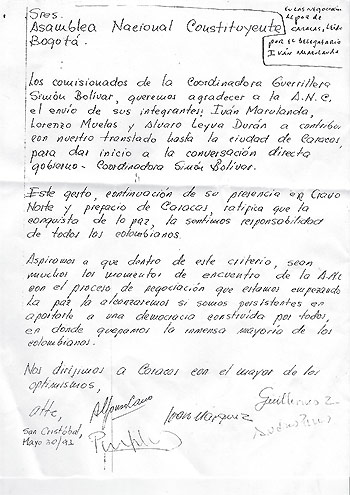 Sres.
Asamblea Nacional Constituyente
Bogotá.
en las negociación
de paz de
Caracas,
por el delegatario
Iván Marulanda
Los comisionados de la Coordinadora Guerrillera
Simón Bolívar, queremos agradecer a la A.N.C.
el envío de sus integrantes: Iván Marulanda,
Lorenzo Muelas y Alvaro Leyva Durán a contribuir
con nuestro translado hasta la ciudad de Caracas,
para dar inicio a la conversación directa
gobierno - Coordinadora Simón Bolívar.
Este gesto, continuación de su presencia en Cravo
Norte y prefacio de Caracas, ratifica que la
conquista de la paz, la sentimos responsabilidad
de todos los colombianos.
Aspiramos a que dentro de este criterio, sean
muchos los momentos de encuentro de la A.N.C
con el proceso de negociación que estamos empezando
La paz la alcanzaremos si somos persistentes en
aportarle a una democracia construída por todos,
en donde quepamos la inmensa mayoría de los
colombianos.
Nos dirigimos a Caracas con el mayor de los
optimismos,
Atte,
Alfonso Cano
Iván Márquez
Guillermo Z.
San Cristóbal,
Mayo 30/91
Andrés París